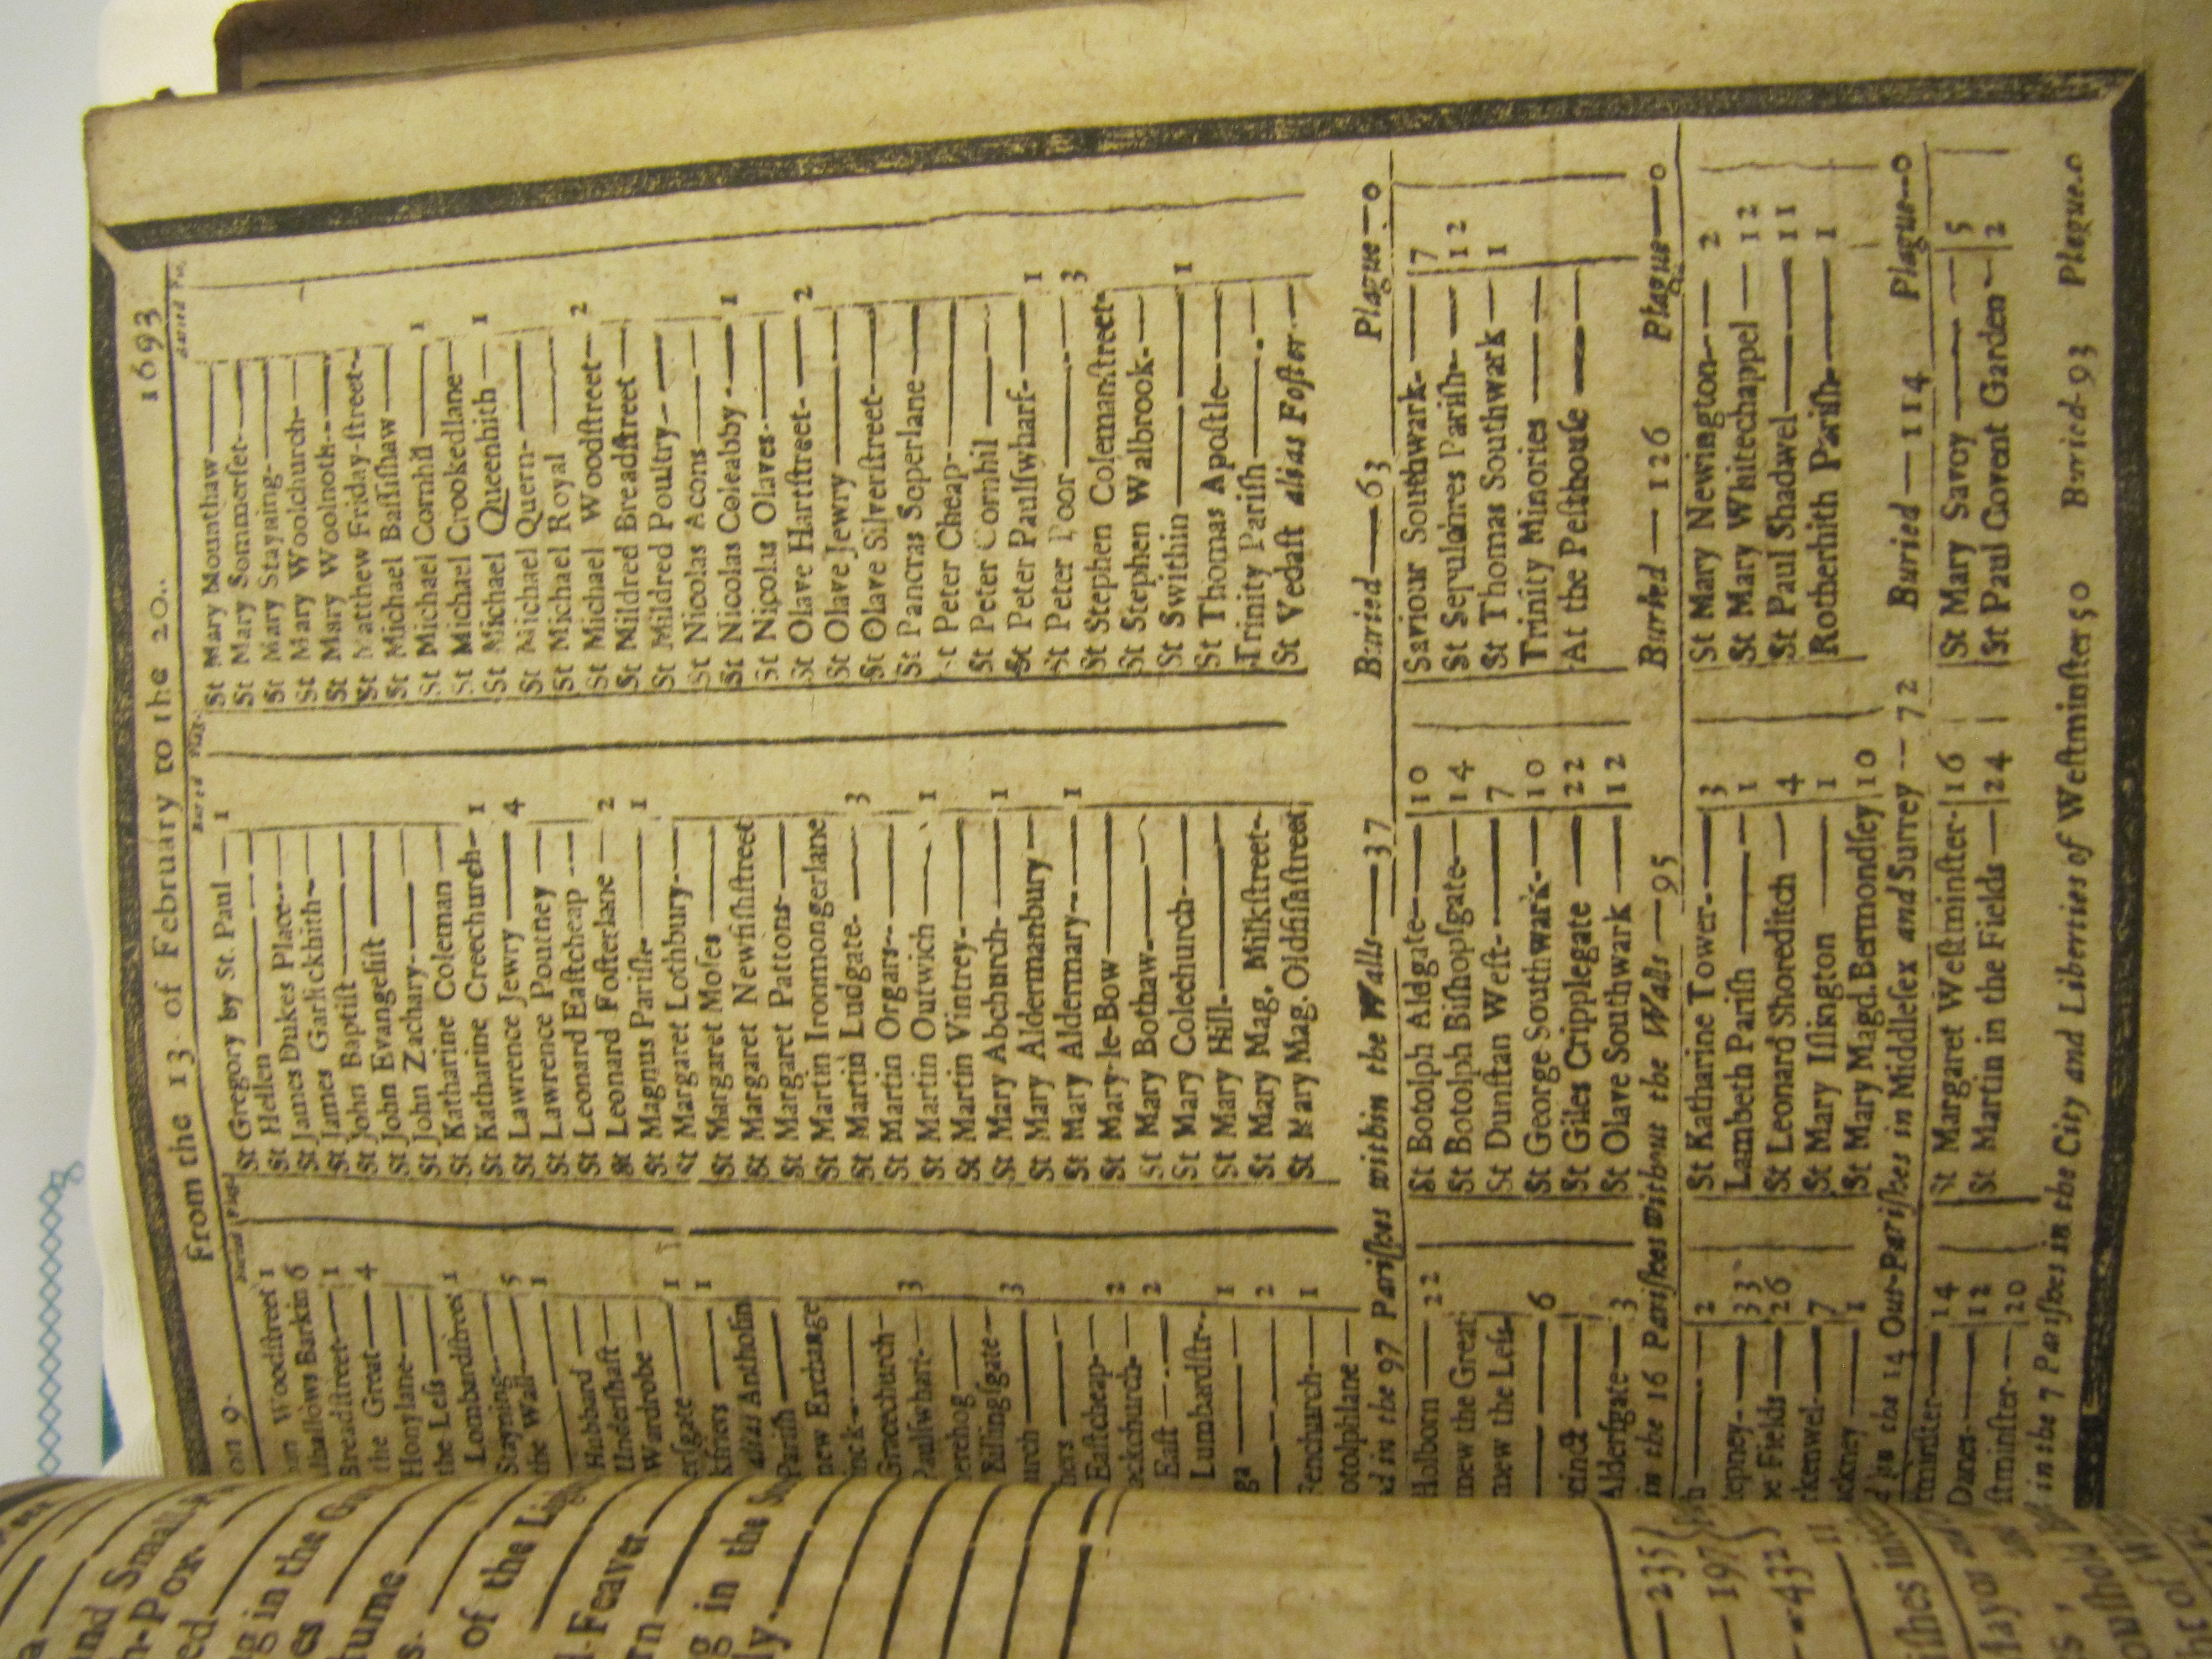 on 9. From the 13. of February to the 20.. 1693
Buried Plag. Buried Plag. Buried
Woodſtreet 1
lhallows Barkin 6
Breadſtreet— 1
the Great— 4
Honylane—
the Leſs— 1
Lombardſtreet
Stayning— 5
the Wall— 1
Hubbard—
Underſhaft—
Wardrobe— 1
erſgate— 1
kfriers—
alias Antholin
Pariſh—
new Exchange
nck—
Gracechurch— 3
Paulſwharf—
erehog—
Billingſgate— 3
urch—
hers—
Eaſtcheap— 2
ackchurch— 2
Eaſt—
Lumbardſtr— 1
ga— 2
Fenchurch— 1
otolphlane—
St Gregory by St. Paul— 1
St Hellen—
St James Dukes Place—
St James Garlickhith—
St John Baptiſt—
St John Evangeliſt—
St John Zachary—
St Katharine Coleman—
St Katharine Creechurch— 1
St Lawrence Jewry— 4
St Lawrence Poutney—
St Leonard Eaſtcheap—
St Leonard Foſterlane— 2
St Magnus Pariſh— 1
St Margaret Lothbury—
St Margaret Moſes—
St Margaret Newfiſhſtreet
St Margaret Pattons—
St Martin Ironmongerlane
St Martin Ludgate— 3
St Martin Orgars—
St Martin Outwich— 1
St Martin Vintrey—
St Mary Abchurch— 1
St Mary Aldermanbury—
St Mary Aldermary— 1
St Mary-le-Bow—
St Mary Bothaw—
St Mary Colechurch—
St Mary Hill—
St Mary Mag. Milkſtreet—
St Mary Mag. Oldfiſhſtreet
St Mary Mounthaw—
St Mary Sommerſet—
St Mary Stayning—
St Mary Woolchurch—
St Mary Woolnoth—
St Matthew Friday-ſtreet—
St Michael Baſſiſhaw—
St Michael Cornhil— 1
St Michael Crookedlane—
St Michael Queenhith— 1
St Michael Quern—
St Michael Royal—
St Michael Woodſtreet— 2
St Mildred Breadſtreet—
St Mildred Poultry—
St Nicolas Acons—
St Nicolas Coleabby— 1
St Nicolas Olaves—
St Olave Hartſtreet— 2
St Olave Jewry—
St Olave Silverſtreet—
St Pancras Soperlane—
St Peter Cheap—
St Peter Cornhil—
St Peter Paulſwharf— 1
St Peter Poor— 3
St Stephen Colemanſtreet
St Stephen Walbrook—
St Swithin— 1
St Thomas Apoſtle—
Trinity Pariſh—
St Vedaſt alias Foſter—
d in the 97 Pariſhes within the Walls— 37 Buried— 63 Plague— 0
Holborn— 22
mew the Great
mew the Leſs
— 6
cinct—
Alderſgate— 3
St Botolph Aldgate— 10
St Botolph Biſhopſgate— 14
St Dunſtan Weſt— 7
St George Southwark— 10
St Giles Cripplegate— 22
St Olave Southwark— 12
Saviour Southwark— 7
St Sepulchres Pariſh— 12
St Thomas Southwark— 1
Trinity Minories—
At the Peſthouſe—
in the 16 Pariſhes without the Walls— 95 Buried— 126 Plague— 0
— 2
tepney— 33
he Fields— 26
rkenwel— 7
ackney— 1
St Katharine Tower— 3
Lambeth Pariſh— 1
St Leonard Shoreditch— 4
St Mary Iſlington— 1
St Mary Magd. Bermondſey 10
St Mary Newington— 2
St Mary Whitechappel— 12
St Paul Shadwel— 11
Rotherhith Pariſh— 1
d in the 14 Out-Pariſhes in Middleſex and Surrey— 72 Buried— 114 Plague— 0
tminſter— 14
Danes— 12
ſtminſter— 20
St Margaret Weſtminſter— 16
St Martin in the Fields— 24
St Mary Savoy— 5
St Paul Covent Garden— 2
in the 7 Pariſhes in the City and Liberties of Weſtminſter 50 Buried— 93 Plague. 0
and Small
ed
g in the
hume
of the
Feaver
g in the
— 235
— 197
— 432
11
iſhes